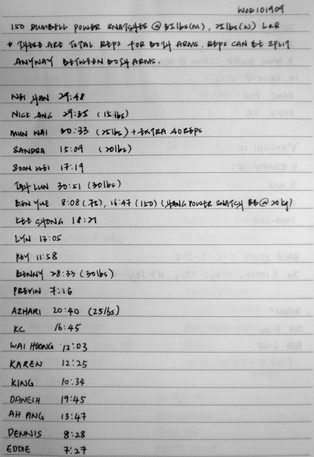 WOD 101909
150 DUMBELL POWER SNATCHES @ 35lbs(M), 25lbs(W) L&R
* THESE ARE TOTAL REPS FOR BOTH ARMS. REPS CAN BE SPLIT
ANYWAY BETWEEN BOTH ARMS.
29:48
NICK ANG 29:35 (15lbs)
MUN WAI 30:33 (25lbs) + EXTRA 40 REPS
SANDRA 15:09 (20lbs)
SOON WEI 17:19
30:51 (30lbs)
BEN YUE 8:08 (75), 16:47 (150) (POWER SNATCH @ 20kg)
KEE CHONG 18:21
LYN 13:05
11:58
BENNY 28:33 (30lbs)
PREVIN 7:16
AZHARI 20:40 (25lbs)
KC 16:45
WAI HOONG 12:03
KAREN 12:25
KING 10:34
DANESH 19:45
AH PING 13:47
DENNIS 8:28
EDDIE 7:27